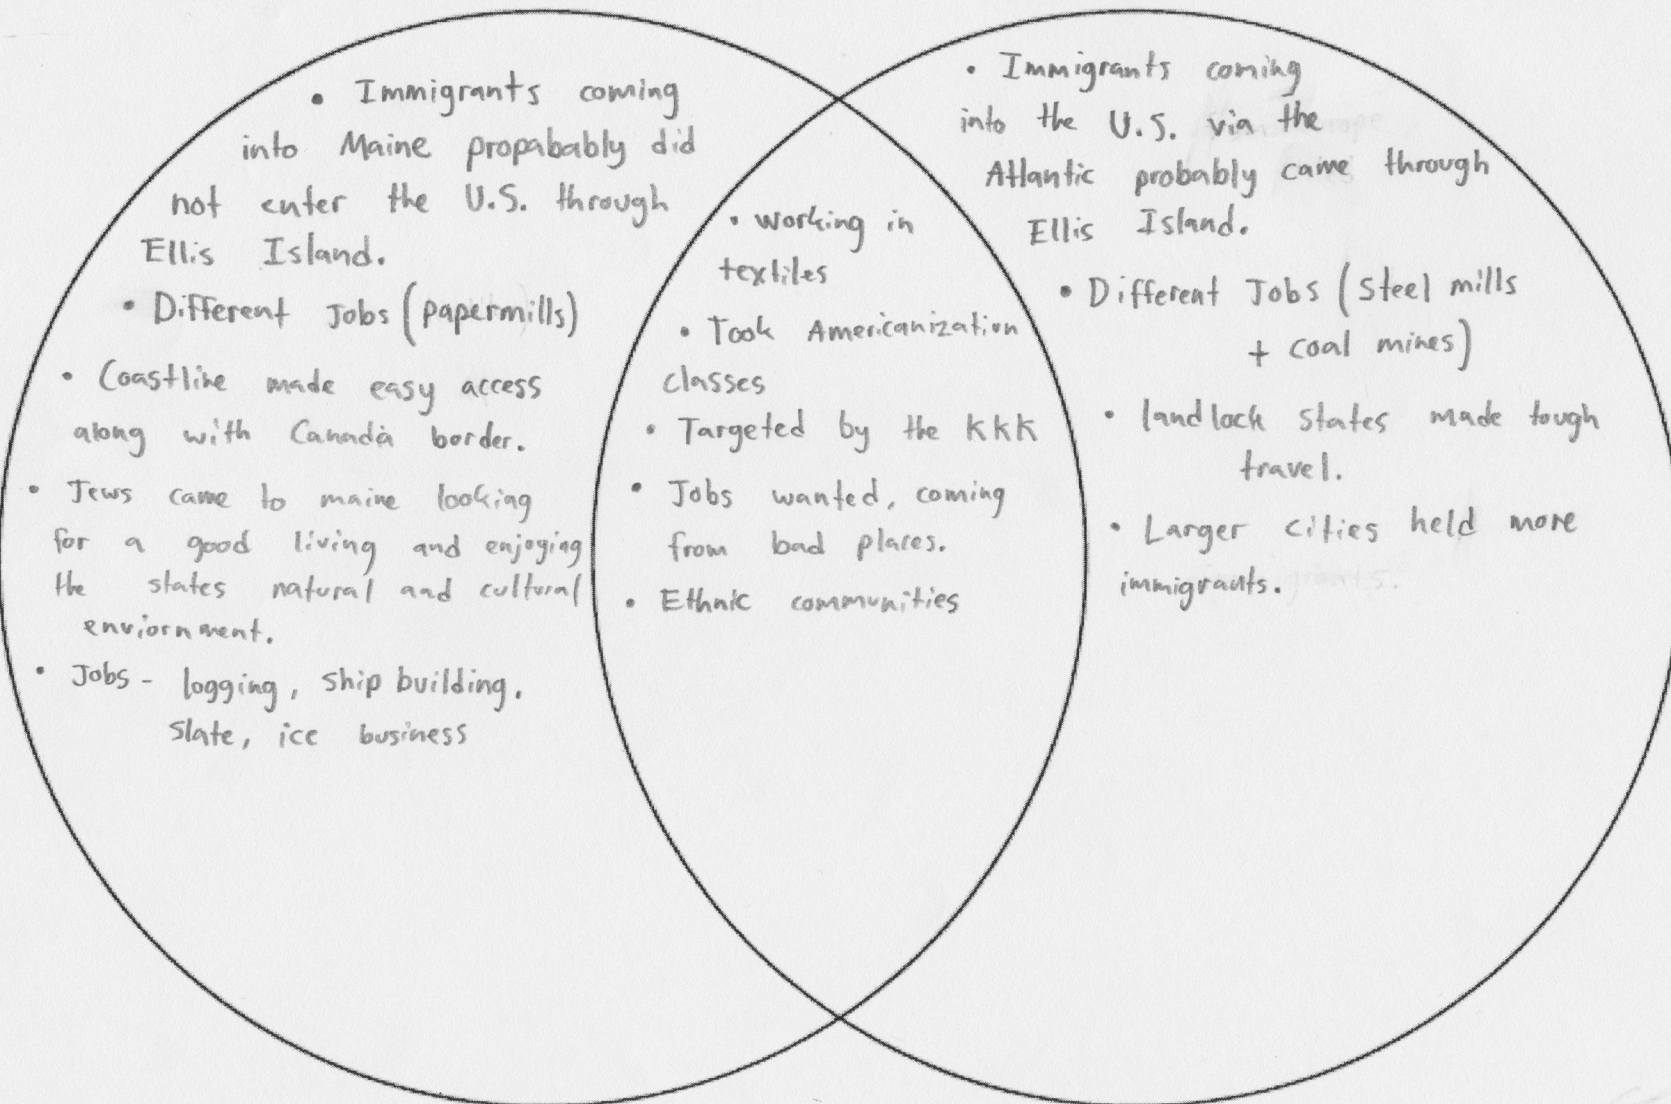 • Immigrants coming
into Maine propabably did
not enter the U.S. through
Ellis Island.
• Different Jobs (papermills)
• Coastline made easy access
along with Canada border.
• Jews came to maine looking
for a good living and enjoying
the states natural and cultural
enviornment.
• Jobs - logging, ship building,
slate, ice business
• working in
textiles
• Took Americanization
classes
• Targeted by the KKK
• Jobs wanted, coming
from bad places.
• Ethnic communities
• Immigrants coming
into the U.S. via the
Atlantic probably came through
Ellis Island.
• Different Jobs (steel mills
+ coal mines)
• landlock states made tough
travel.
• Larger cities held more
immigrants.